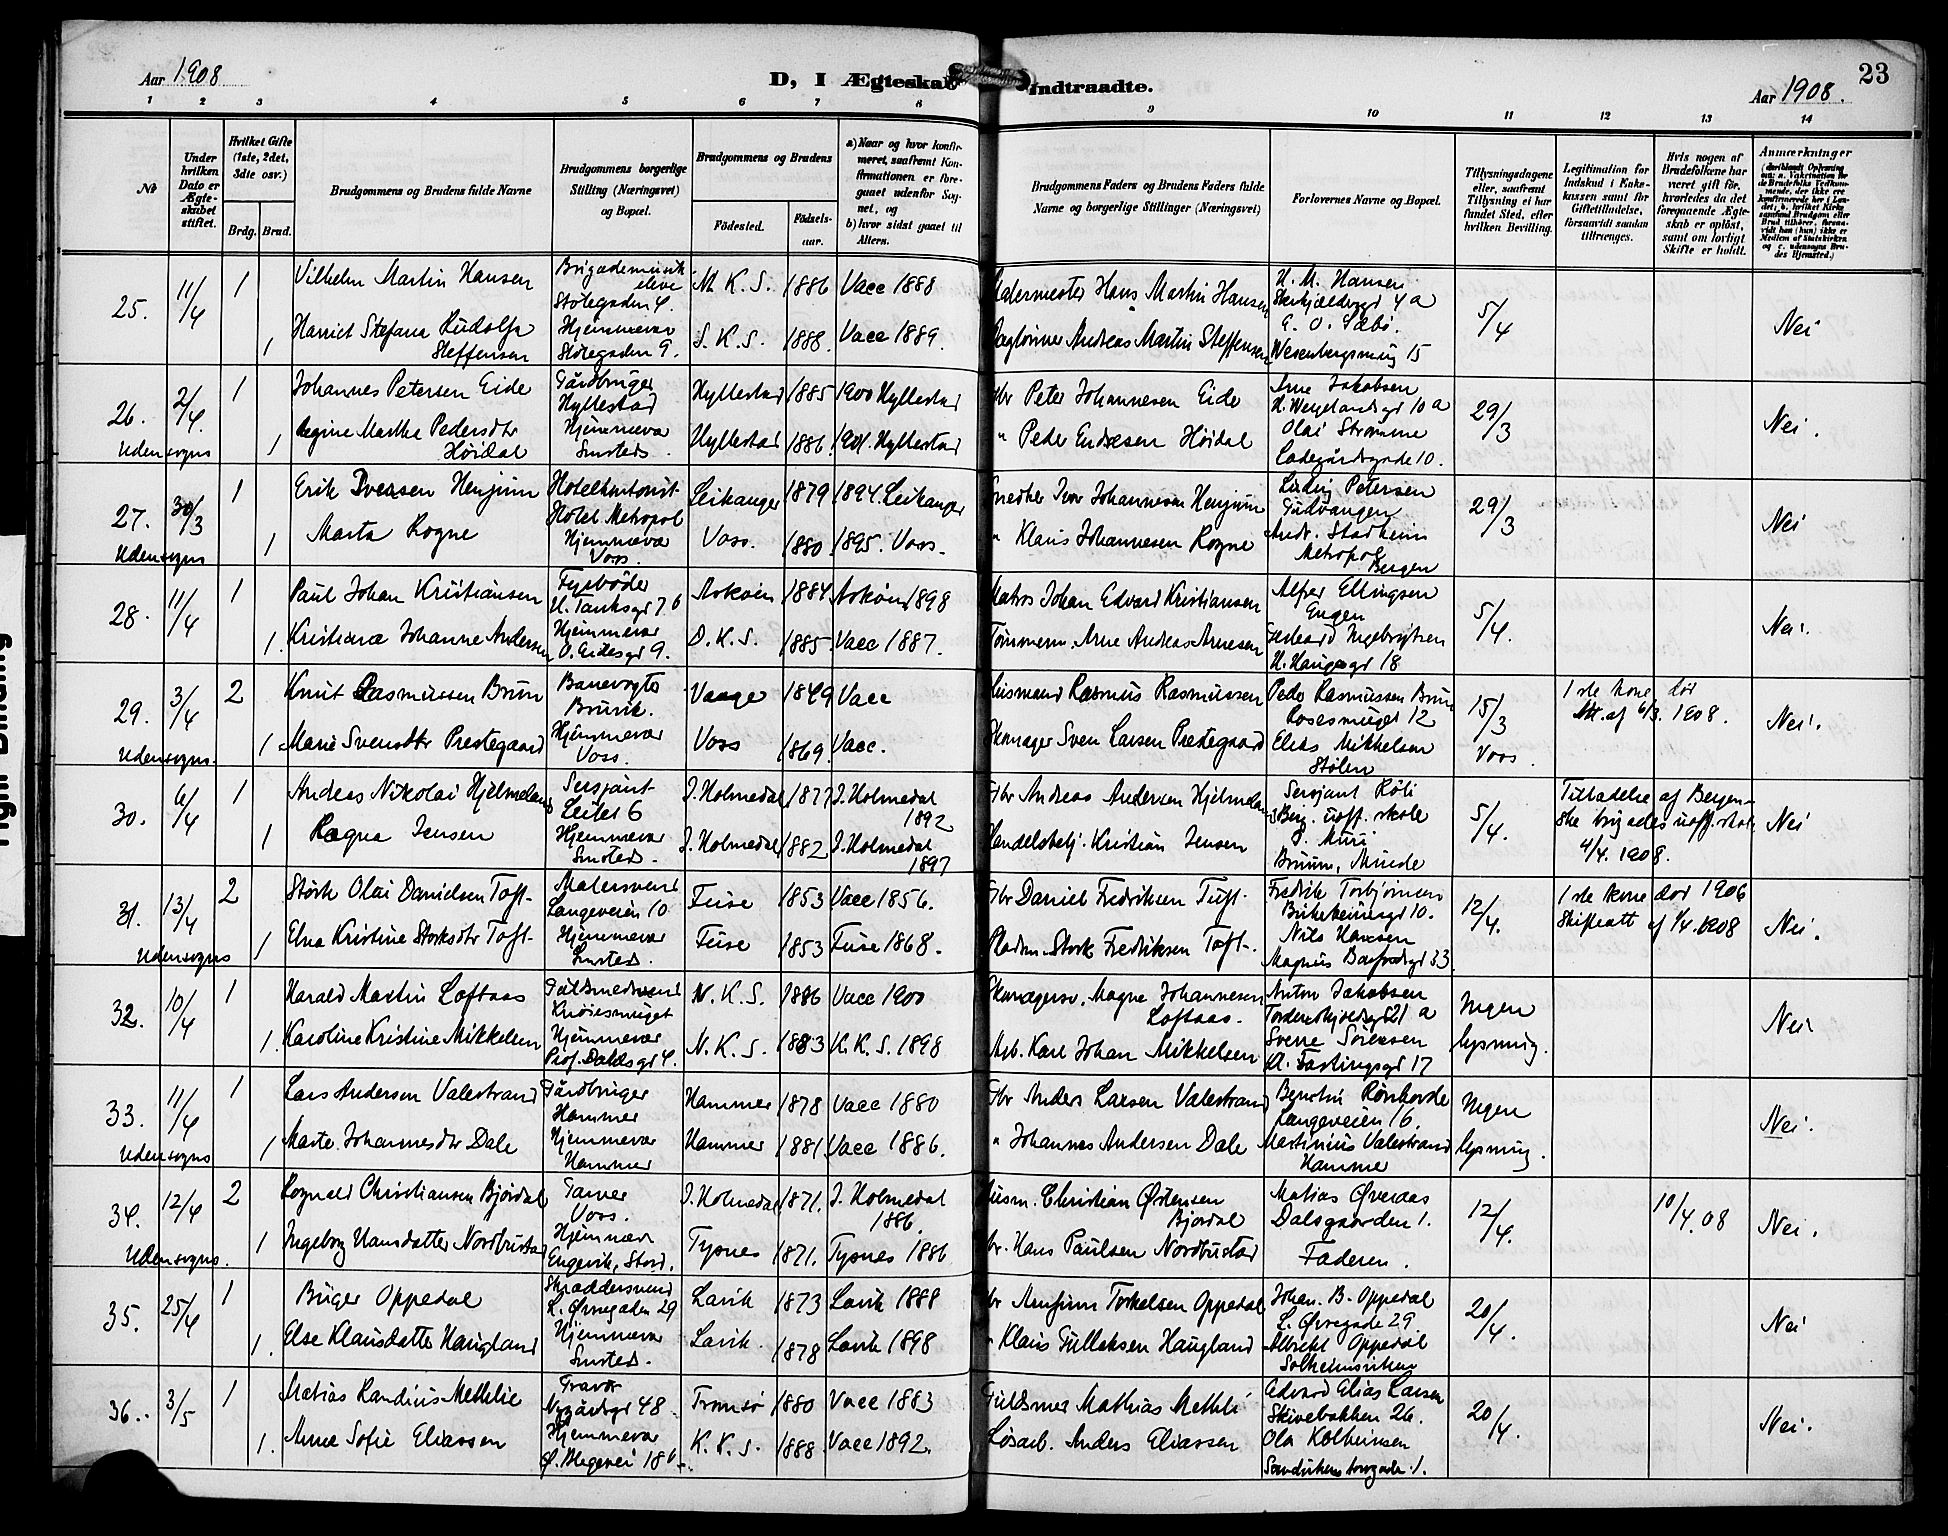 Aar 1908
D, I Ægteskab indtraadte.
Aar 1908.
23
1 2 3 4 5 6 7 8 9 10 11 12 13 14
№
Under hvilken Dato er Ægteskabet stiftet.
Hvilket Gifte (1ste, 2det, 3die osv.)
Brdg. Brud.
Brudgommens og Brudens fulde Navne
Brudgommens borgerlige Stilling (Næringsvei) og Bopæl.
Brudgommens og Brudens
Fødested.
Fødselsaar.
a) Naar og hvor konfirmeret, saafremt Konfirmationen er foregaaet udenfor Sognet, og
b) hvor sidst gaaet til Alters.
Brudgommens Faders og Brudens Faders fulde Navne og borgerlige Stillinger (Næringsvei)
Forlovernes Navne og Bopæl.
Tillysningsdagene eller, saafremt Tillysning ei har fundet Sted, efter hvilken Bevilling.
Legitimation for Indskud i Enkekassen samt for Giftetilladelse, forsaavidt saadan tiltrænges.
Hvis nogen af Brudefolkene har været gift før, hvorledes da det foregaaende Ægteskab er opløst, samt om lovligt Skifte er holdt.
Anmærkninger
25. 11/4 1 Vilhelm Martin Hansen Brigademusikelev Stølegaden 4. N. K. S. 1886 Vacc 1888 Malermester Hans Martin Hansen H. M. Hansen 4 a 5/4 Nei
1 Harriet Stefana Rudolfa Steffensen Hjemmevær Stølegaden 9. D. K. S. 1888. Vacc 1889. Daglønner Andreas Martin Steffensen G. O. Sæbø. Wesenbergsmug 15
26. 2/4. 1 Johannes Petersen Eide Gårdbruger Hyllestad Hyllestad 1885 1900 Hyllestad Gbr Peter Johannesen Eide Arne Jakobsen H. Wergelandsgd 10 a 29/3 Nei.
Udensogns 1 Regine Marthe Pedersdtr Høidal Hjemmevær Smsteds. Hyllestad 1886. 1901. Hyllestad " Peder Endresen Høidal Olai Strømme Ladegårdsgade 10.
27. 30/3 1 Erik Iversen Henjum Hotelkontorist Hotel Metropol Leikanger 1879 1894. Leikanger Snedker Ivar Johannesen Henjum Ludvig Petersen Gudvangen 29/3 Nei
Udensogns 1 Marta Rogne Hjemmevær Voss. Voss. 1880. 1895. Voss. " Klaus Johannesen Rogne Andr. Stadheim Metropol Bergen
28. 11/4 1 Paul Johan Kristiansen Fyrbøder U. Tanksgd 7 b Askøen 1884 Askøen 1898 Matros Johan Edvard Kristiansen Alfred Ellingsen Engen 5/4. Nei.
1. Kristiane Johanne Andersen Hjemmevær O. Eidesgd 9. D. K. S. 1885. Vacc 1887. Tømmerm. Arne Andreas Arnesen Ingebrigtsen H. Haugesgd 18
29. 3/4 2 Knut Rasmussen Brun Banevogter Brurik. Vaage 1849 Vacc Husmand Rasmus Rasmussen Peder Rasmussen Brun Rosesmuget 12 15/3 1ste kone død Att. af 6/3. 1908. Nei.
Udensogns. 1 Marie Svensdtr Prestegaard Hjemmevær Voss. Voss 1869. Vacc. Skomager Sven Larsen Prestegaard Elias Mikkelsen Stølen Voss.
30. 6/4 1 Andreas Nikolai Hjelmeland Sersjant Leitet 6 I. Holmedal 1877 I. Holmedal 1892 Gbr Andreas Andersen Hjelmeland Sersjant Røli Berg. uoff. skole 5/4. Tilladelse af Bergenske brigades uoff. skole 4/4. 1908. Nei
1 Ragna Jensen Hjemmevær Smsteds. I. Holmedal 1882 I. Holmedal 1897 Handelsbetj. Kristian Jensen J. Muri Bruun, Minde
31. 13/4 2 Størk Olai Danielsen Toft Malersvend Langeveien 10 Fuse 1853 Vacc 1856. Gbr Daniel Fredriksen Tuft. Fredrik Torbjørnsen Birkebeinersgd 10. 12/4. 1ste kone død 1906 Skifteatt af 1/4. 1908 Nei.
Udensogns 1 Elna Kristine Storksdtr Toft Hjemmevær Smsteds. Fuse 1853 Fuse 1868. Pladsm. Stork Fredriksen Toft. Nils Hansen Magnus Barfodsgd 33
32. 10/4 1 Harald Martin Loftaas Guldsmedsvend Krøiersmuget N. K. S. 1886 Vacc 1900 Skomagersv. Magne Johannesen Loftaas. Anton Jakobsen Tordenskjoldsgd 21 a Ingen lysning. Nei
1. Karoline Kristine Mikkelsen Hjemmevær Prof. Dahlsgd 4. N. K. S. 1883 K. K. S. 1898 Arb. Karl Johan Mikkelsen Sverre Sørensen Kl. Fastingsgd 17
33. 11/4 1 Lars Andersen Valestrand Gårdbruger Hammer Hammer 1878 Vacc 1880 Gbr Anders Larsen Valestrand Rønhovde Langeveien 16. Ingen lysning. Nei.
Udensogns 1 Marte Johannesdtr Dale Hjemmevær Hammer Hammer 1881. Vacc 1886. " Johannes Andersen Dale Martinius Valestrand Hammer
34. 12/4 2 Rognald Christiansen Bjørdal Garver Voss. I. Holmedal 1871. I. Holmedal 1886. Husm. Christian Østensen Bjørdal Matias Øverdas Dalsgaarden 1. 12/4. 10/4. 08 Nei.
Udensogns. 1 Ingeborg Hansdatter Nordhustad Hjemmevær Engevik, Stord. Tysnes 1871. Tysnes 1886 Gbr. Hans Paulsen Nordhustad Faderen.
35. 25/4 1 Birger Oppedal Skræddersvend L. Øvregaden 29 Lavik 1873 Lavik 1888 Gbr Arnfinn Torkelsen Oppedal Johan. B. Oppedal L. Øvregade 29 20/4. Nei
1. Else Klausdatter Haugland Hjemmevær Smsteds. Lavik. 1878 Lavik 1898 " Klaus Gulleksen Haugland Albrekt Oppedal Solheimsviken
36. 3/5 1 Matias Randius Methlie Gravør Nygårdsgd 48 Tromsø 1880 Vacc 1883 Guldsmed Mathias Methli Edvard Elias Larsen Skivebakken 26. 20/4. Nei.
1. Anna Sofie Eliassen Hjemmevær Ø. Blegevei 18 b K. K. S. 1888 Vacc 1892. Løsarb. Anders Eliassen Ola Kolbeinsen Sandvikens torvgade 1.